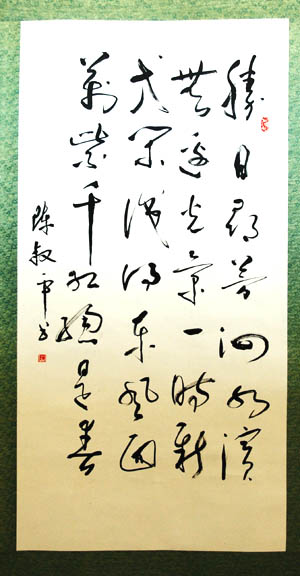 勝日尋芳泗水濱
無邊光景一時新
等閒識得東風面
萬紫千紅總是春
陈叔平书